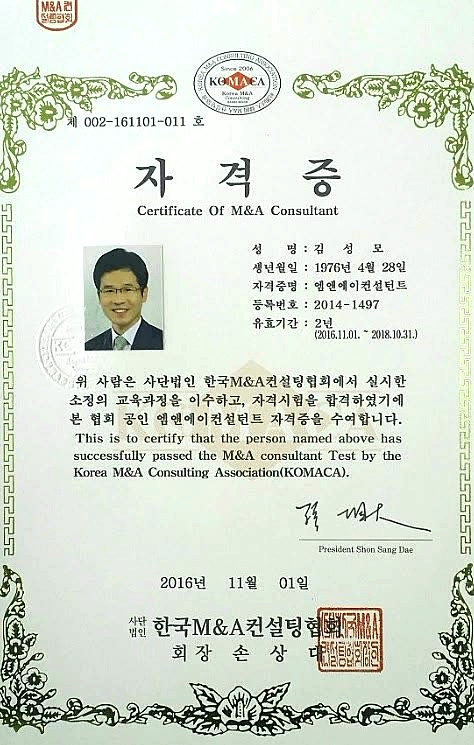 M&A컨
설팅협회
KOREA M&A CONSULTING ASSOCIATION
Since 2006
KOMACA
Korea M&A
Consulting
제 002-161101-011 호
자 격 증
Certificate Of M&A Consultant
성 명 : 김 성 모
생년월일 : 1976년 4월 28일
자격증명 : 엠앤에이컨설턴트
등록번호 : 2014-1497
유효기간 : 2년
(2016.11.01. ~ 2018.10.31.)
위 사람은 사단법인 한국M&A컨설팅협회에서 실시한
소정의 교육과정을 이수하고, 자격시험을 합격하였기에
본 협회 공인 엠앤에이컨설턴트 자격증을 수여합니다.
This is to certify that the person named above has
successfully passed the M&A consultant Test by the
Korea M&A Consulting Association(KOMACA).
President Shon Sang Dae
2016년 11월 01일
사단
법인 한국M&A컨설팅협회
회장 손 상 대